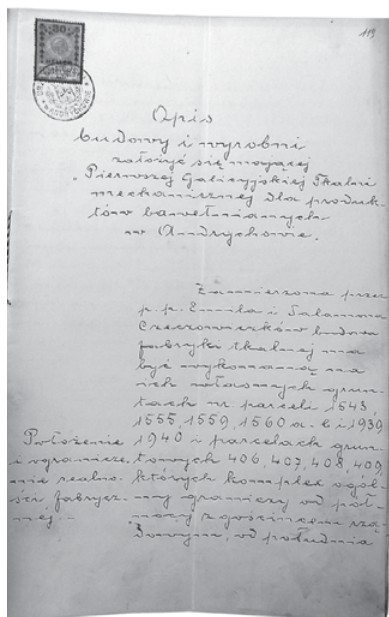 119
Opis
budowy i wyrobni
założyć się mającej
„Pierwszej Galicyjskiej Tkalni
mechanicznej dla produk-
tów bawełnianych
w Andrychowie.
Zamierzona przez
p.p. Emila i Salamona
Czeczowiczków budowa
fabryki tkalnej ma
być wykonaną na
ich własnych grun-
tach nr parceli 1543,
1555, 1559, 1560 a. b i 1939
1940 i parcelach grun-
towych 406, 407, 408, 409,
których kompleks ogól-
ny graniczy od pół-
nocy z gościńcem rzą-
dowym, od południa
Położenie
i ogranicze
nie realno-
ści fabrycz-
nej.-